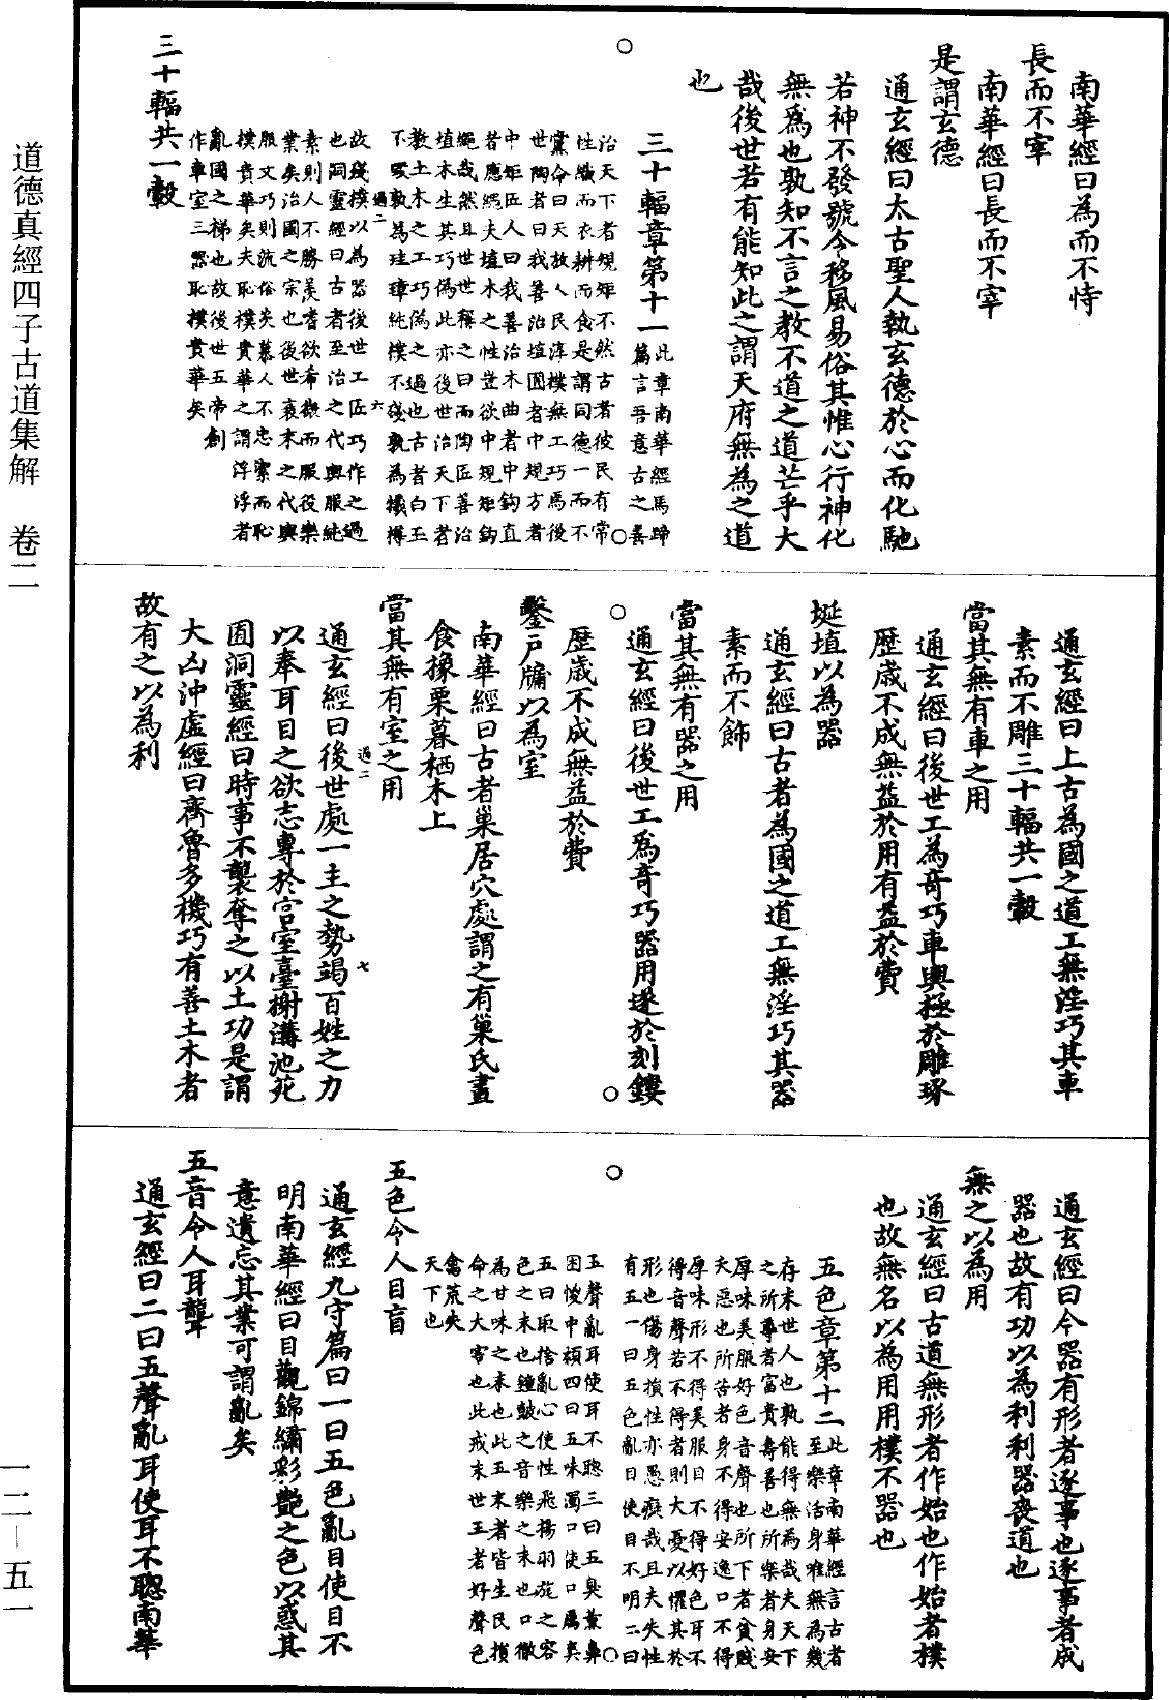 道德真經四子古道集解　卷二
一二─五一
南華經曰為而不恃
長而不宰
南華經曰長而不宰
是謂玄德
通玄經曰太古聖人執玄德於心而化馳
若神不發號令移風易俗其惟心行神化
無為也孰知不言之教不道之道芒乎大
哉後世若有能知此之謂天府無為之道
也
三十輻章第十一此章南華經馬蹄
篇言吾意古之善
治天下者規矩不然古者彼民有常
性織而衣耕而食是謂同德一而不
黨命曰天放人民淳樸無工巧焉後
世陶者曰我善治埴圓者中規方者
中矩匠人曰我善治木曲者中鈎直
者應繩夫埴木之性豈欲中規矩鈎
繩哉然且世世稱之曰而陶匠善治
埴木生其巧偽此亦後世治天下者
教土木之工巧偽之過也古者白玉
不毀孰為珪璋純樸不殘孰為犧樽
過二　六
故殘樸以為器後世工匠巧作之過
也洞靈經曰古者至治之代輿服純
素則人不勝羨嗜欲希微而服役樂
業矣治國之宗也後世衰末之代輿
服文巧則流俗炎慕人不忠潔而恥
樸貴華矣夫恥樸貴華之謂浮浮者
亂國之梯也故後世五帝創
作車室三器恥樸貴華矣
三十輻共一轂
通玄經曰上古為國之道工無淫巧其車
素而不雕三十輻共一轂
當其無有車之用
通玄經曰後世工為奇巧車輿極於雕琢
歷歲不成無益於用有益於費
埏埴以為器
通玄經曰古者為國之道工無淫巧其器
素而不飾
當其無有器之用
通玄經曰後世工為奇巧器用遂於刻鏤
歷歲不成無益於費
鑿戶牖以為室
南華經曰古者巢居穴處謂之有巢氏晝
食橡栗暮栖木上
當其無有室之用
過二　七
通玄經曰後世處一主之勢竭百姓之力
以奉耳目之欲志專於宮室臺榭溝池苑
囿洞靈經曰時事不襲奪之以土功是謂
大凶沖虛經曰齊魯多機巧有善土木者
故有之以為利
通玄經曰今器有形者逐事也逐事者成
器也故有功以為利利器喪道也
無之以為用
通玄經曰古道無形者作始也作始者樸
也故無名以為用用樸不器也
五色章第十二此章南華經言古者
至樂活身唯無為幾
存末世人也孰能得無為哉夫天下
之所尊者富貴壽善也所樂者身安
厚味美服好色音聲也所下者貧賤
夭惡也所苦者身不得安逸口不得
厚味形不得美服目不得好色耳不
得音聲若不得者則大憂以懼其於
形也傷身損性亦愚癡哉且夫失性
有五一曰五色亂目使目不明二曰
五聲亂耳使耳不聰三曰五臭薰鼻
困惾中顙四曰五味濁口使口厲爽
五曰取捨亂心使性飛揚羽旄之容
色之末也鐘鼓之音樂之末也口徹
為甘味之末也此五末者皆生民損
命之大害也此戒末世王者好聲色
禽荒失
天下也
五色令人目盲
通玄經九守篇曰一曰五色亂目使目不
明南華經曰目觀錦繡彩艷之色以惑其
意遺忘其業可謂亂矣
五音令人耳聾
通玄經曰二曰五聲亂耳使耳不聰南華